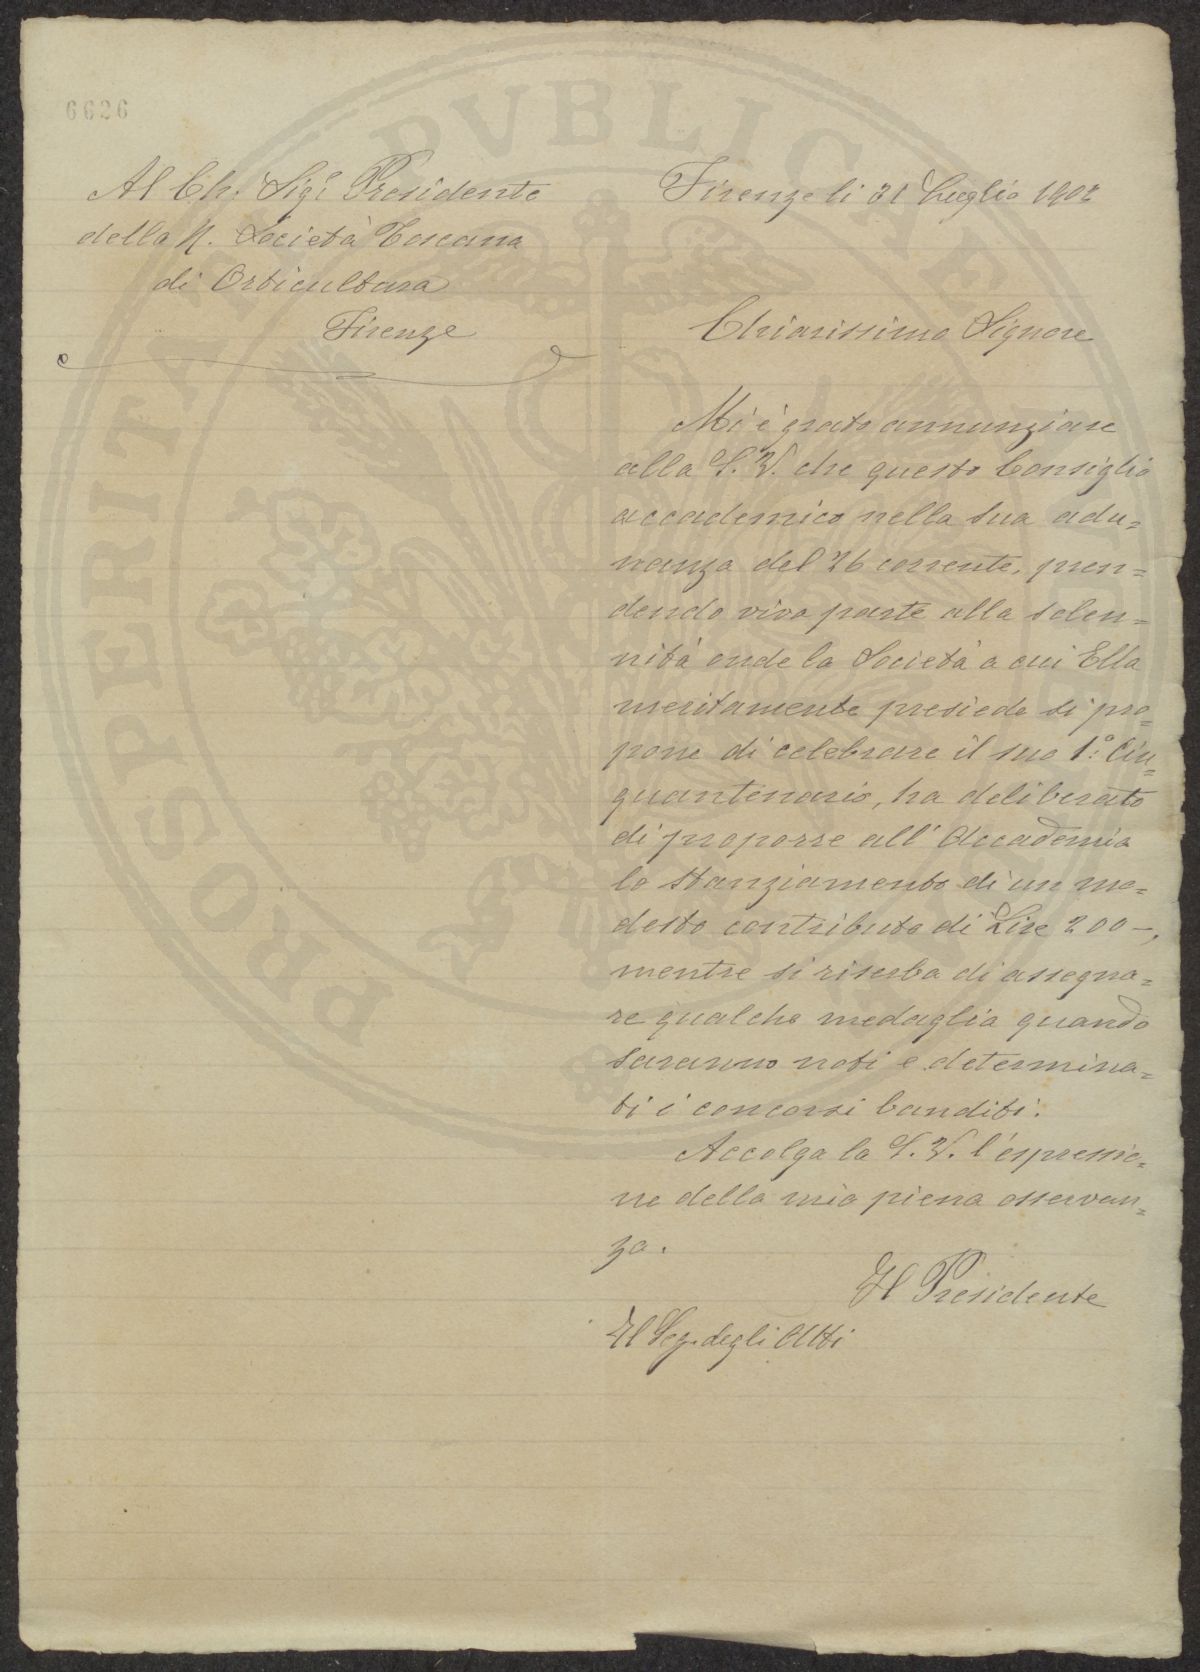 6626
Al Ch. Sig.r Presidente
della R. Società Toscana
di Orticultura
Firenze
Firenze li 31 Luglio 1902
Chiarissimo Signore
Mi è grato annunziare
alla S. V. che questo Consiglio
accademico nella sua adu=
nanza del 26 corrente, pren=
dendo viva parte alla solen=
nità onde la Società a cui Ella
meritamente presiede si pro=
pone di celebrare il suo 1.° Cin=
quantenario, ha deliberato
di proporre all'Accademia
lo stanziamento di un mo=
desto contributo di Lire 200 —,
mentre si riserba di assegna=
re qualche medaglia quando
saranno noti e determina=
ti i concorsi banditi.
Accolga la S. V. l'espressio=
ne della mia piena osservan=
za.
Il Presidente
Il Seg. degli Atti
PROSPERITATI PVBLICAE